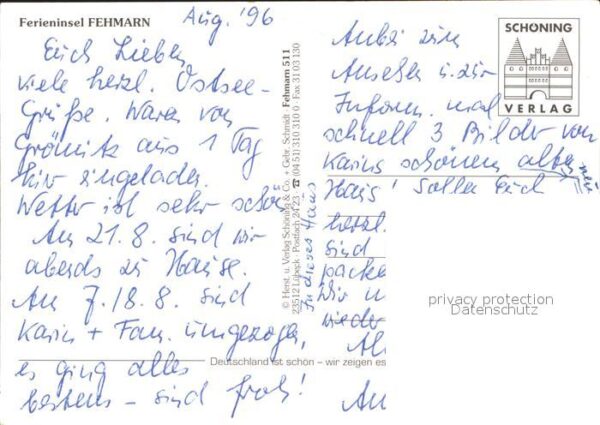 Ferieninsel FEHMARN
Aug. '96
Euch Lieben
viele herzl. Ostsee-
Grüße. Waren von
Grömitz aus 1 Tag
hier eingeladen.
Wetter ist sehr schön.
Am 21.8. sind wir
abends zu Hause.
Am 7./8.8. sind
Karin + Fam. umgezogen,
es ging alles
bestens - sind froh!
© Herst. u. Verlag Schöning & Co. + Gebr. Schmidt Fehmarn 511
23512 Lübeck · Postfach 24 23 ☎ (04 51) 310 310 · Fax 31 03 130
In dieses Haus
Deutschland ist schön – wir zeigen es
SCHÖNING
VERLAG
Anbei zum
Ansehen u. zur
Inform. mal
schnell 3 Bilder von
Karins schönem alten neu
Haus! Sollen Euch
herzl.
sind
packe
Wir u
wieder
Al
An
privacy protection
Datenschutz